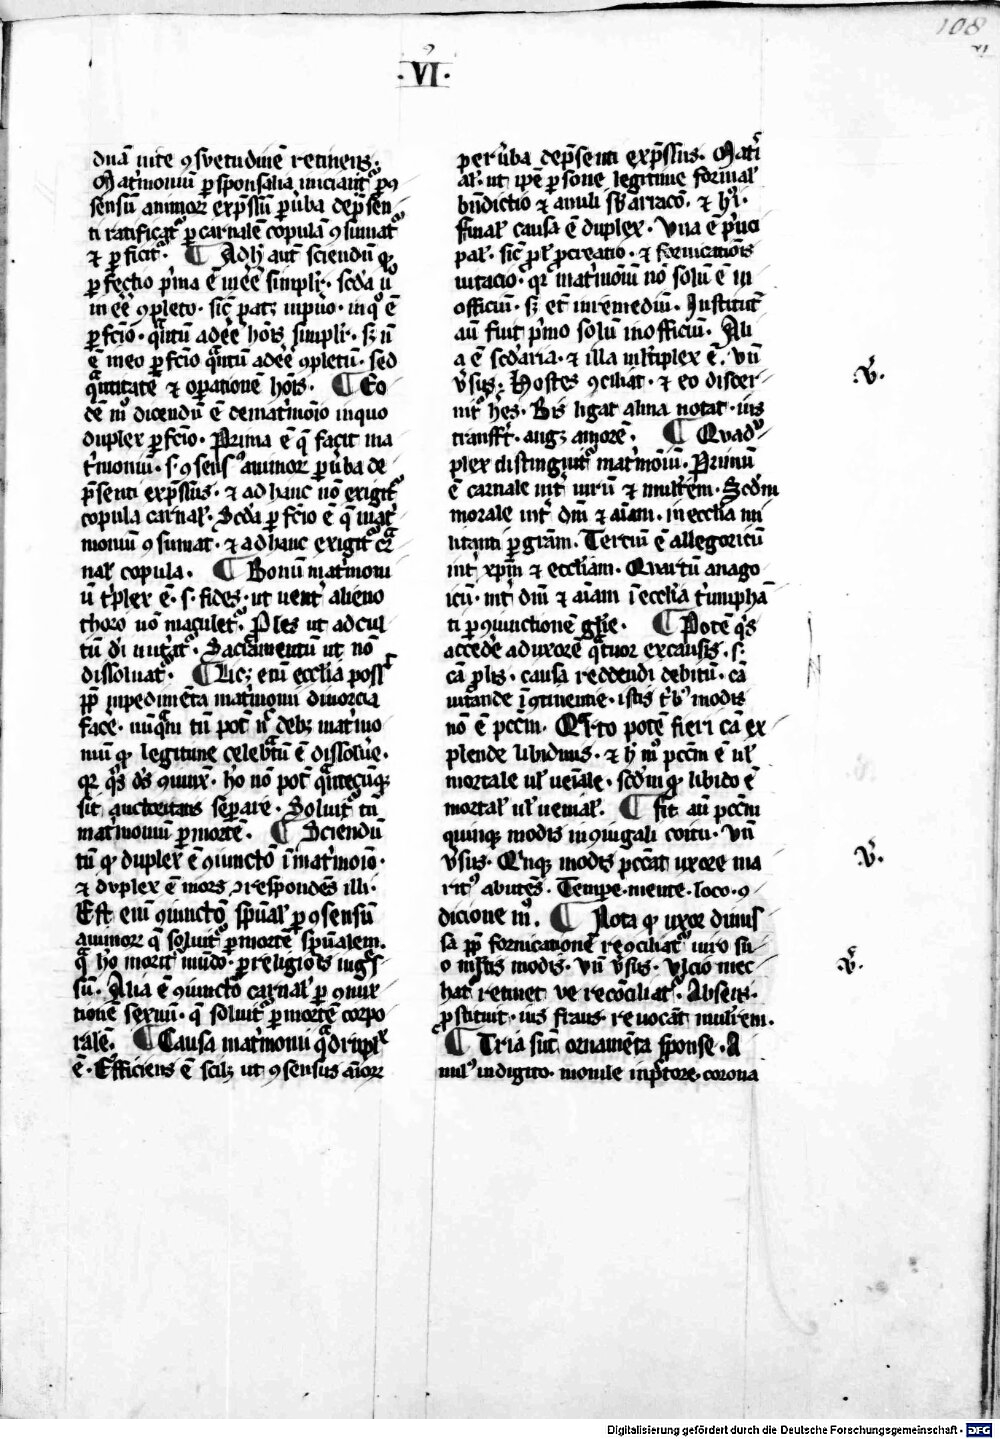 108
VI
·VI·
duā uite ꝯsuetudinē retinens·
Matͥmoniū ꝑ sponsalia iniciant᷑ ꝑ ꝯ
sensū animoꝝ exp̄ssū ꝑ uͥba dep̄sen
ti ratificat᷑ ꝑ carnalē copulā ꝯsumat᷑
⁊ ꝑficit᷑· ¶ Adhͨ aut̄ sciendū ꝙ
ꝑfectio pͥma ē in ēē simplicͥ· scd̓a uͦ
in ēē ꝯpleto· sic̄ patꝫ in pūo· in qͦ ē
ꝑfcīo· qͣntū ad ēē hoīs simplicͥ· sꝫ nō
ē in eo ꝑfcīo qͣntū ad ēē ꝯpletū· sed
qͣntitatē ⁊ oꝑationē hoīs· ¶ Eo
dē mͦ dicendū ē de matͥmoīo in quo
duplex ꝑfcīo· Prima ē q̄ facit ma
tͥmoniū· s· ꝯsensꝰ animoꝝ ꝑ uͥba de
p̄senti exp̄ssus· ⁊ ad hanc nō exigit᷑
copula carnal̓· Scd̓a ꝑfcīo ē q̄ matͥ
moniū ꝯsumat· ⁊ ad hanc exigit᷑ cͣr
nal̓ copula· ¶ Bonū matͥmoni
ū tͥplex ē· s· fides· ut uent̓ alieno
thoro nō maculet᷑· Ples ut ad cul
tū dī nutͥat᷑· Sacͣmentū ut nō
dissoluat᷑· ¶ Licꝫ enī ecclīa poss̄
ꝓp̄ inpedimēta matͥmonii diuorcia
facē· nūqͣm tn̄ pot̄ nͨ debꝫ matͥmo
niū ꝙ legitime celebͣtū ē dissoluē·
qꝛ qͦs dꝰs ꝯiunx̄· hō nō pot̄ qͣntecūqꝫ
sit auctoritatis separe· Soluit᷑ tn̄
matͥmoniū ꝑ mortē· ¶ Sciendū
tn̄ ꝙ duplex ē ꝯiunctō ī matͥmoīo·
⁊ duplex ē mors ꝯrespondēs illi·
Est enī ꝯiunctō sp̄ual̓ ꝑ ꝯsensū
animoꝝ q̄ soluit᷑ ꝑ mortē sp̄ualem·
qͣ hō morit᷑ mūdo· ꝑ religiōīs ingͤs
sū· Alia ē ꝯiunctō carnal̓ ꝑ ꝯmix
tionē sexuū· q̄ soluit᷑ ꝑ mortē corpo
ralē· ¶ Causa matͥmonii qͣdrupl̓x
ē· Efficiens ē scilꝫ ut ꝯsensus aīoꝝ
per uͥba dep̄senti exp̄ssus· Matͥi
al̓· ut ip̄e ꝑsone legitime formal̓
bn̄dictio ⁊ anuli sb̓arracō· ⁊ hͥ·
final̓ causa ē duplex· Una ē pͥnci
pal̓· sic̄ pl̓ pcreatio· ⁊ fornicatiōīs
uitacio· qꝛ matͥmōiū nō solū ē in
officiū· sꝫ et̄ in remediū· Institut̄
aū fuit pͥmo solū in officiū· Ali
a ē scd̓aria· ⁊ illa mltͥplex ē· Vn̄
v̓sus· Hostes ꝯciliat· ⁊ eo discer
nit᷑ hͤs· Bis ligat alma notat· ius
transfert· augꝫ amorē· ¶ Quadͥu
plex distinguit᷑ matͥmōiū· Primū
ē carnale int̓ uirū ⁊ mulͥem· Scd̓m
morale int̓ dm̄ ⁊ aīam· in ecclīa mi
litanti ꝑ gͣm· Terciū ē allegoricū
int̓ xp̄m ⁊ eccl̓iam· Quartū anago
icū· int̓ dm̄ ⁊ aīam ī ecclīa tͥumphā
ti ꝑ ꝯiunctionē gl̓ie· ¶ Potē qͥs
accedē ad uxorē qͣtuor ex causis· s·
cā plis· causa reddendi debitū· cā
uitande īꝯtinentie· istis tͥbꝰ modis
nō ē pcc̄m· Qͣrto potē fieri cā ex
plende libidinis· ⁊ hͦ mͦ pcc̄m ē ul̓
mortale ul̓ ueīale· scd̓m ꝙ libido ē
mortal̓ ul̓ uenial̓· ¶ Fit aū pcc̄m
quinqꝫ modis in ꝯiugali coitu· Vn̄
v̓sus· Qͥnqꝫ modis pcc̄at uxore ma
ritꝰ abutēs· Tempe· mente· loco· ꝯ
dicione mͦ· ¶ Nota ꝙ uxor dimis
sa ꝓp̄ fornicationē reꝯciliat᷑ uiro su
o mltͥis modis· Vn̄ v̓sus· Vlcio mec
hat᷑ retinet ue recōciliat᷑· Absens·
ꝓstituit· uis fraus· reuocāt mulͥem·
¶ Tria sūt ornamēta sponse· A
nulꝰ in digito· monile in pctore· corona
v̄·
v̄·
v̄·
N
Digitalisierung gefördert durch die Deutsche Forschungsgemeinschaft - DFG